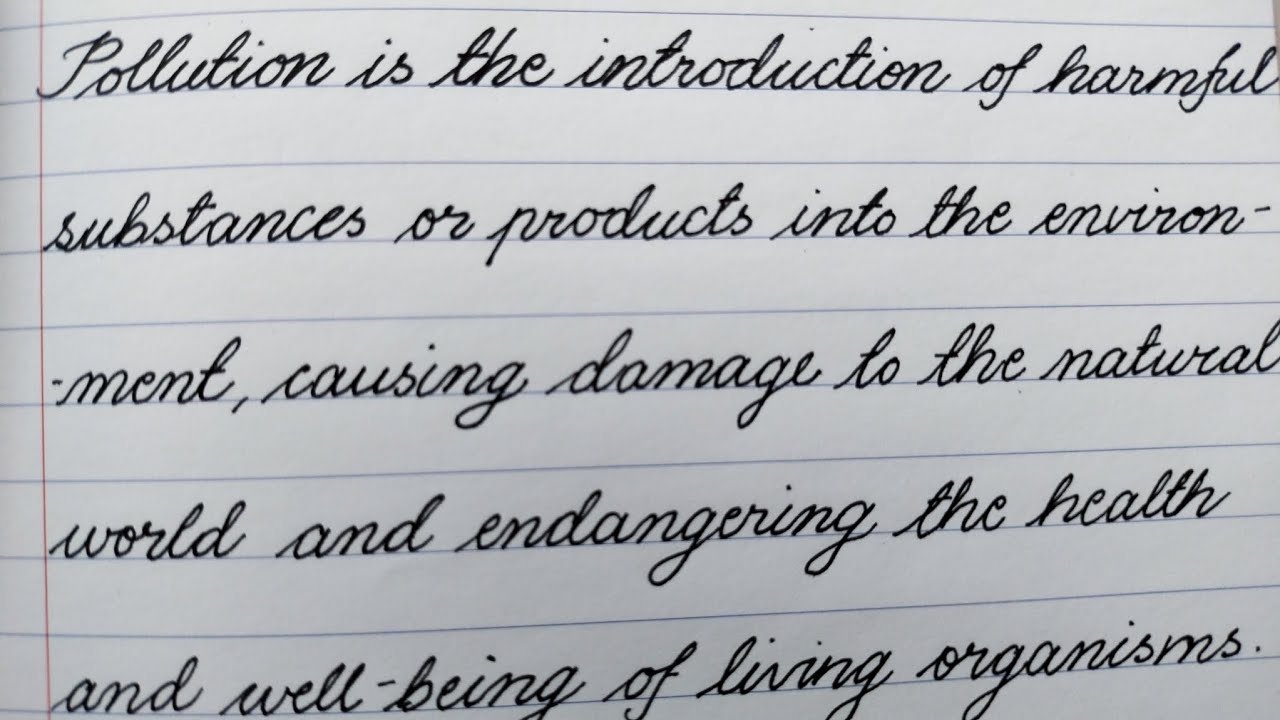 Pollution is the introduction of harmful
substances or products into the environ-
-ment, causing damage to the natural
world and endangering the health
and well-being of living organisms.